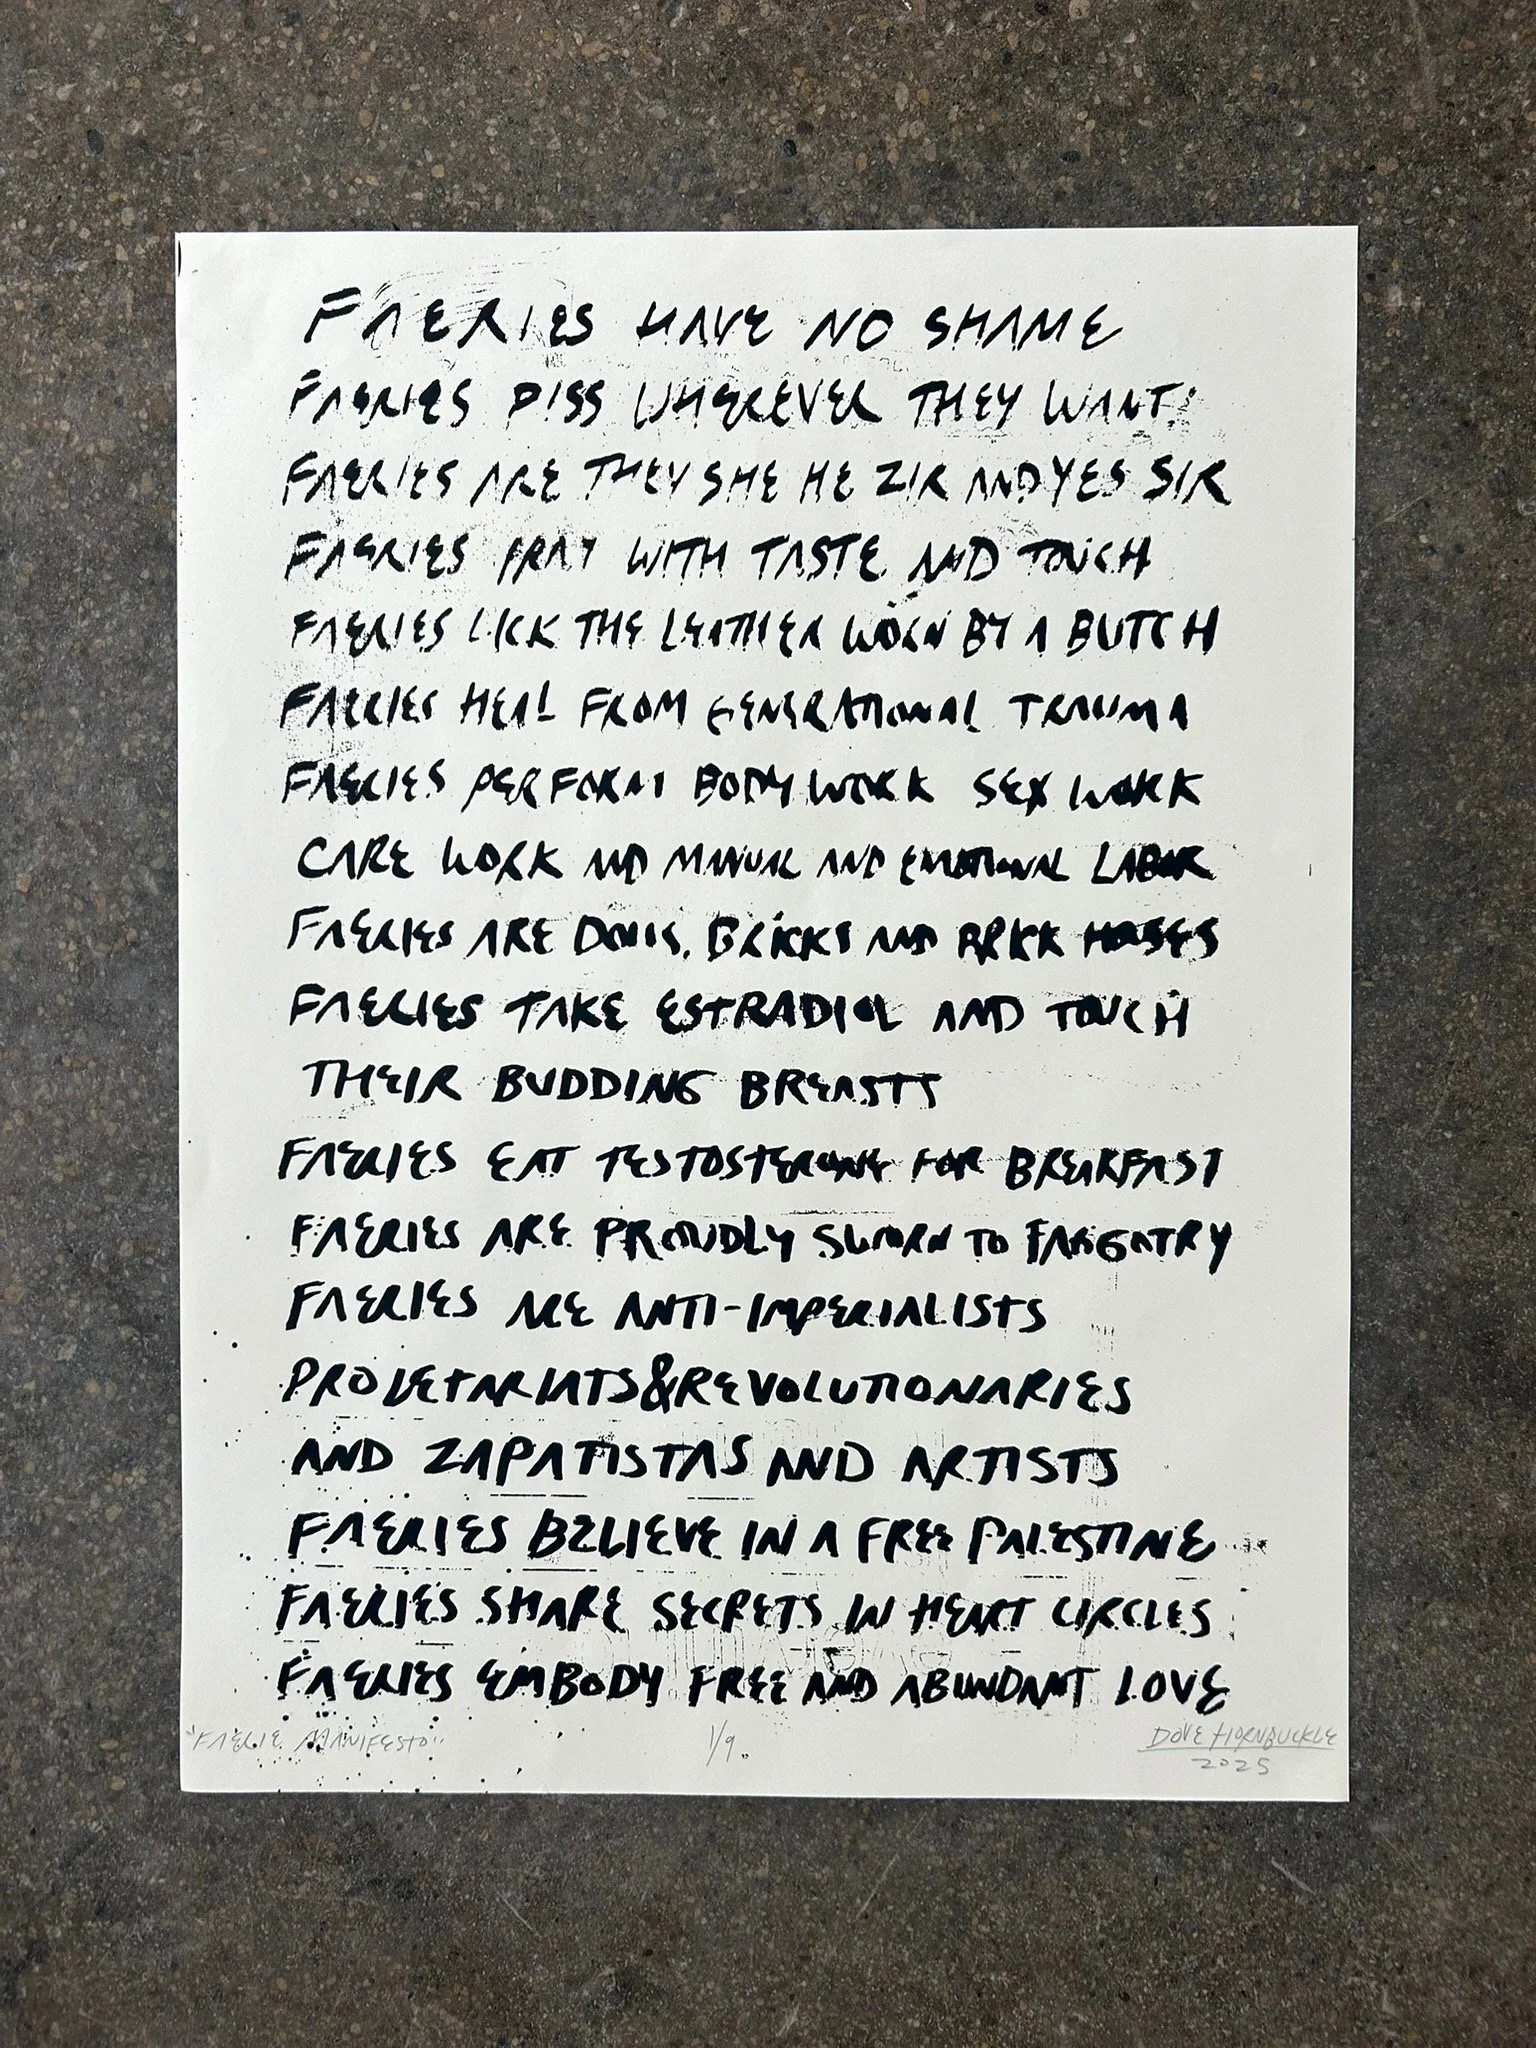 FAERIES HAVE NO SHAME
FAERIES PISS WHEREVER THEY WANT
FAERIES ARE THEY SHE HE ZIR AND YES SIR
FAERIES PRAY WITH TASTE AND TOUCH
FAERIES LICK THE LEATHER WORN BY A BUTCH
FAERIES HEAL FROM GENERATIONAL TRAUMA
FAERIES PERFORM BODY WORK SEX WORK
CARE WORK AND MANUAL AND EMOTIONAL LABOR
FAERIES ARE DOLLS, BRICKS AND BRICK HOUSES
FAERIES TAKE ESTRADIOL AND TOUCH
THEIR BUDDING BREASTS
FAERIES EAT TESTOSTERONE FOR BREAKFAST
FAERIES ARE PROUDLY SWORN TO FAGGOTRY
FAERIES ARE ANTI-IMPERIALISTS
PROLETARIATS & REVOLUTIONARIES
AND ZAPATISTAS AND ARTISTS
FAERIES BELIEVE IN A FREE PALESTINE
FAERIES SHARE SECRETS IN HEART CIRCLES
FAERIES EMBODY FREE AND ABUNDANT LOVE
"FAERIE MANIFESTO" 1/9 DOVE HORNBUCKLE
2025